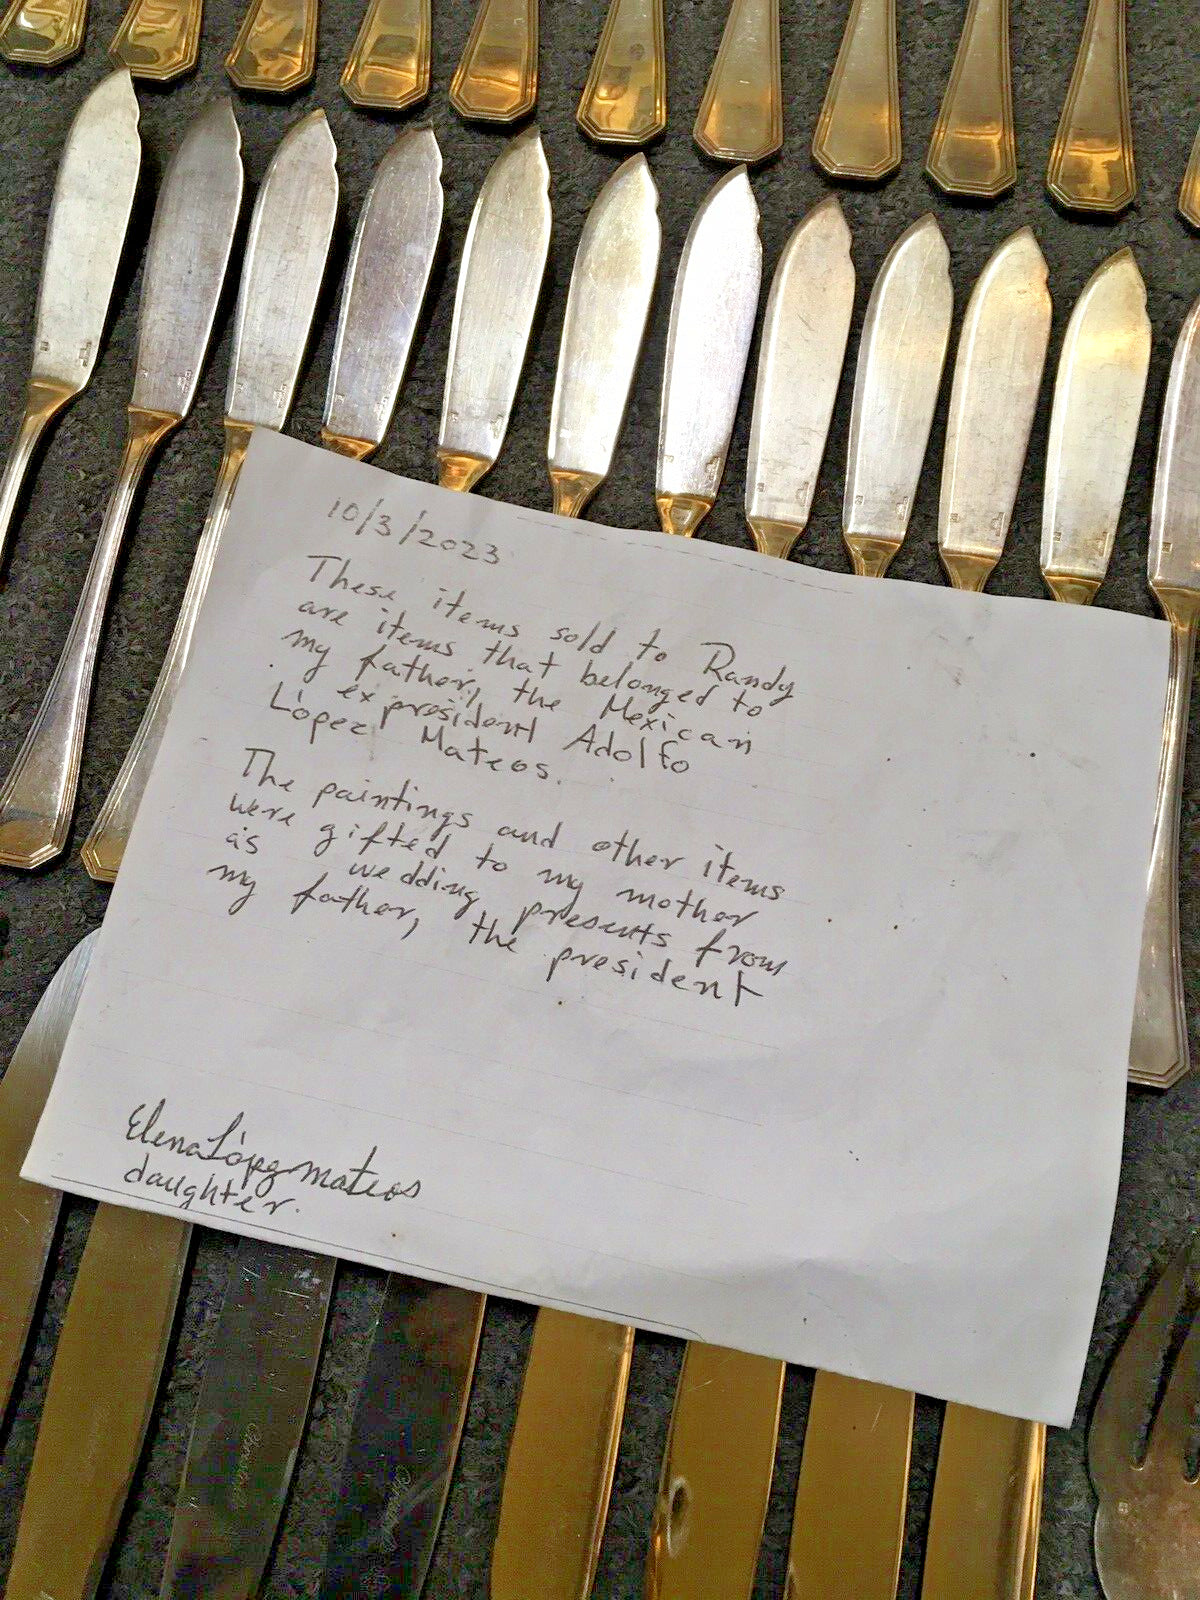 10/3/2023
These items sold to Randy
are items that belonged to
my father, the Mexican
ex president Adolfo
López Mateos.
The paintings and other items
were gifted to my mother
as wedding presents from
my father, the president
Elena López Mateos
daughter.
Christofle